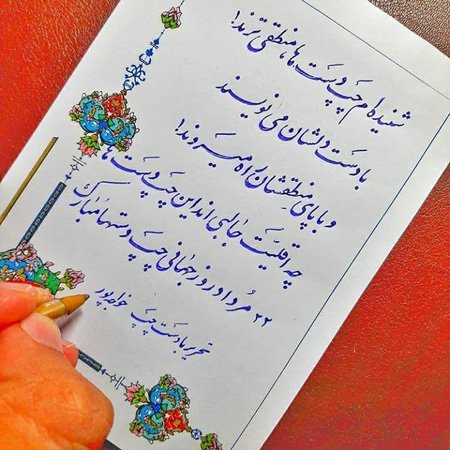 شنیده‌ام چپ دست ها منطقی ترند!
با دست دلشان می نویسند
و با پای منطقشان راه میروند!
چه اقلیت جالبی اند این چپ دست ها
۲۲ مرداد روز جهانی چپ دستها مبارک
تحریر با دست چپ خواجه پور